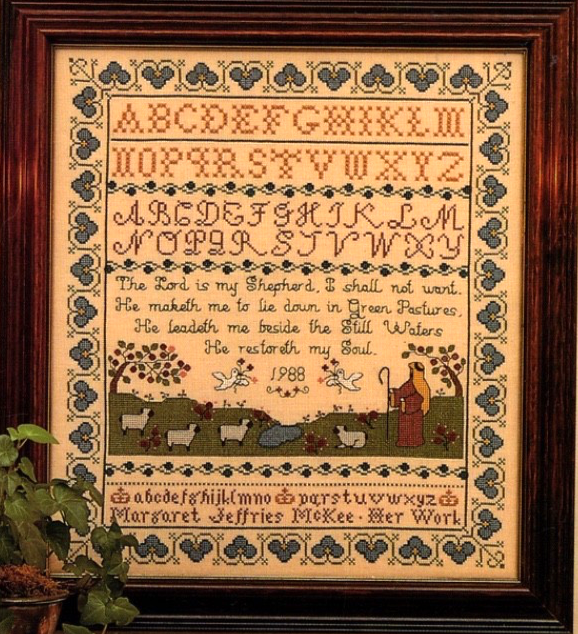 ABCDEFGHIKLM
NOPQRSTVWXYZ
ABCDEFGHIKLM
NOPQRSTVWXY
The Lord is my Shepherd, I shall not want.
He maketh me to lie down in Green Pastures,
He leadeth me beside the Still Waters
He restoreth my Soul.
1988
abcdefghijklmno pqrstuvwxyz
Margaret Jeffries McKee · Her Work